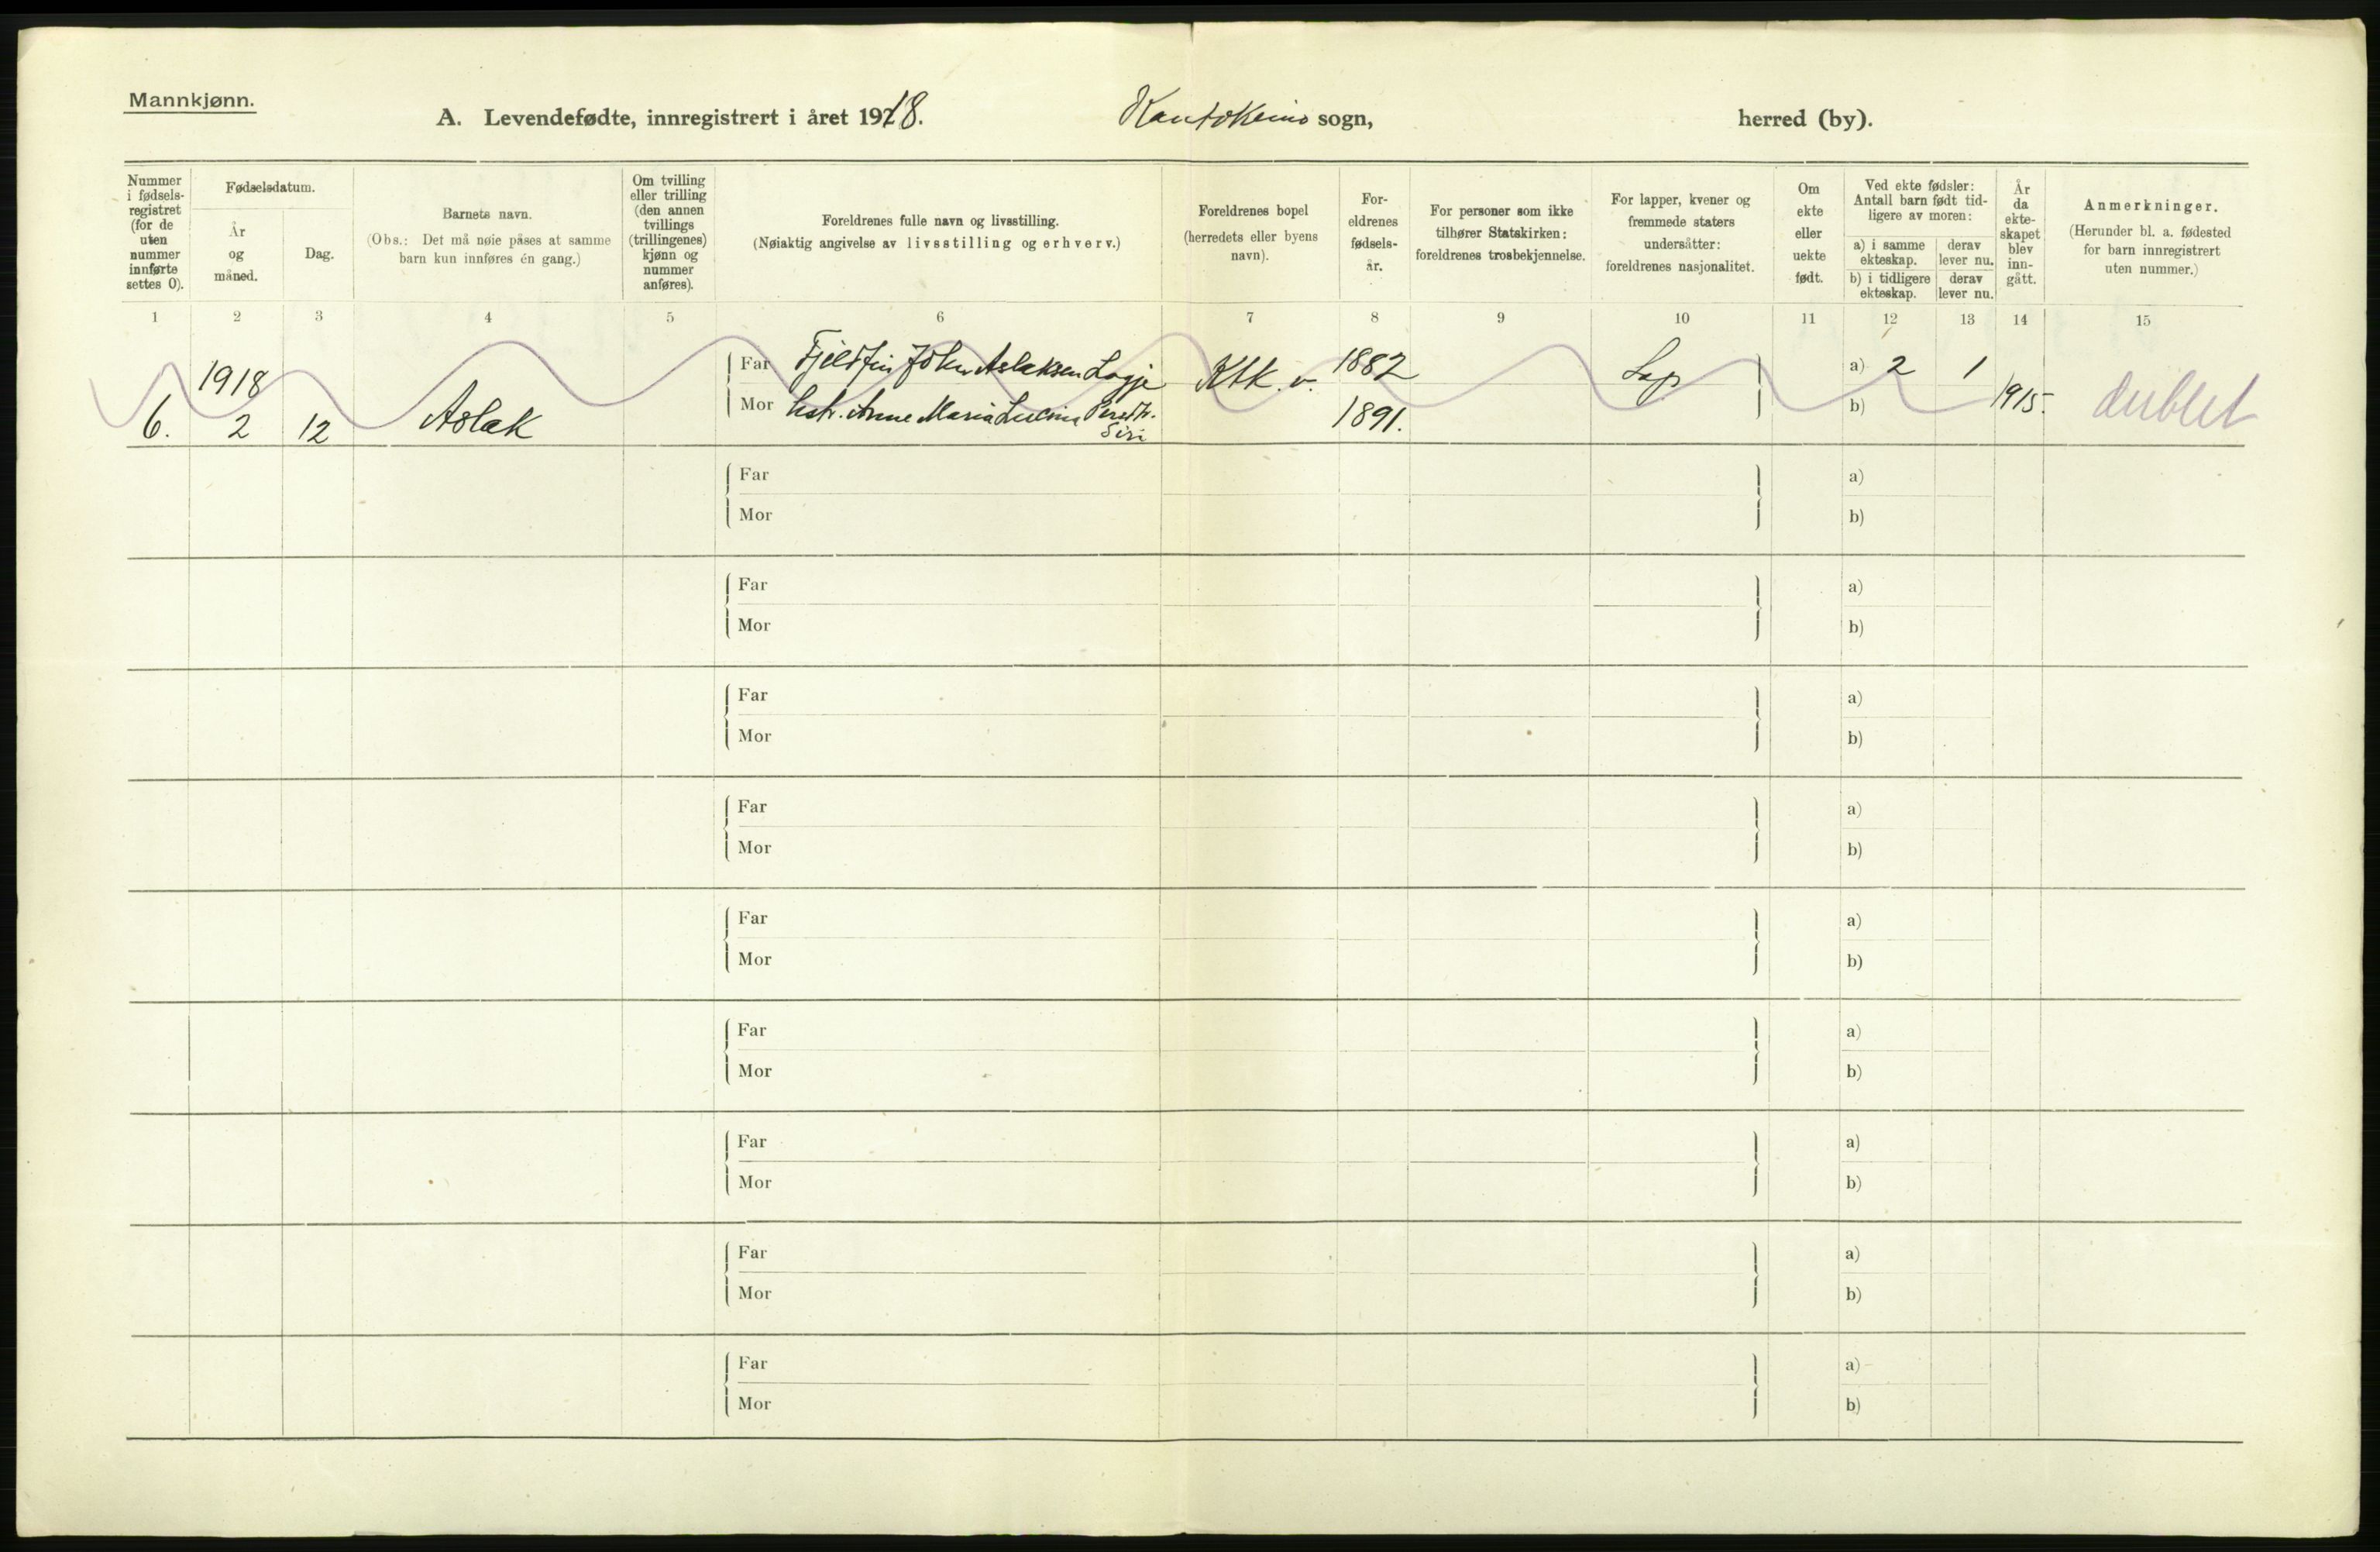 Mannkjønn.
A. Levendefødte, innregistrert i året 1918. Kautokeino sogn, herred (by).
Nummer i fødselsregistret (for de uten nummer innførte settes 0).
Fødselsdatum.
År og måned.
Dag.
Barnets navn.
(Obs.: Det må nøie påses at samme barn kun innføres én gang.)
Om tvilling eller trilling (den annen tvillings (trillingenes) kjønn og nummer anføres).
Foreldrenes fulle navn og livsstilling.
(Nøiaktig angivelse av livsstilling og erhverv.)
Foreldrenes bopel (herredets eller byens navn).
Foreldrenes fødselsår.
For personer som ikke tilhører Statskirken: foreldrenes trosbekjennelse.
For lapper, kvener og fremmede staters undersåtter: foreldrenes nasjonalitet.
Om ekte eller uekte født.
Ved ekte fødsler: Antall barn født tidligere av moren:
a) i samme ekteskap.
derav lever nu.
b) i tidligere ekteskap.
derav lever nu.
År da ekteskapet blev inngått.
Anmerkninger.
(Herunder bl. a. fødested for barn innregistrert uten nummer.)
1 2 3 4 5 6 7 8 9 10 11 12 13 14 15
6. 1918 2 12 Aslak
Far Fjeldfin John Aslaksen Logje Ktk. v. 1882 Lap a) 2 1 1915. dublet
Mor hstr. Anne Maria Lucina Persdtr. Siri 1891. b)
Far a)
Mor b)
Far a)
Mor b)
Far a)
Mor b)
Far a)
Mor b)
Far a)
Mor b)
Far a)
Mor b)
Far a)
Mor b)
Far a)
Mor b)
Far a)
Mor b)